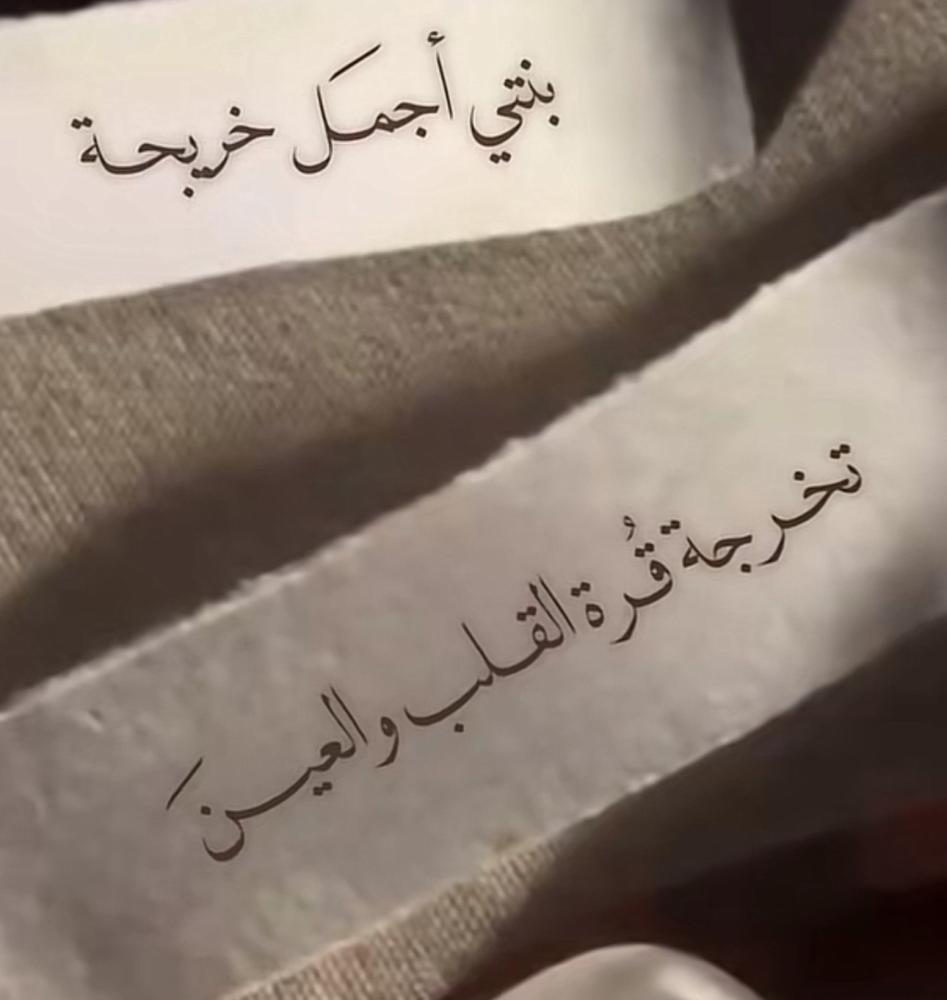 بنتي أجمَل خريحة
تخرجة قُرة القلب والعينَ